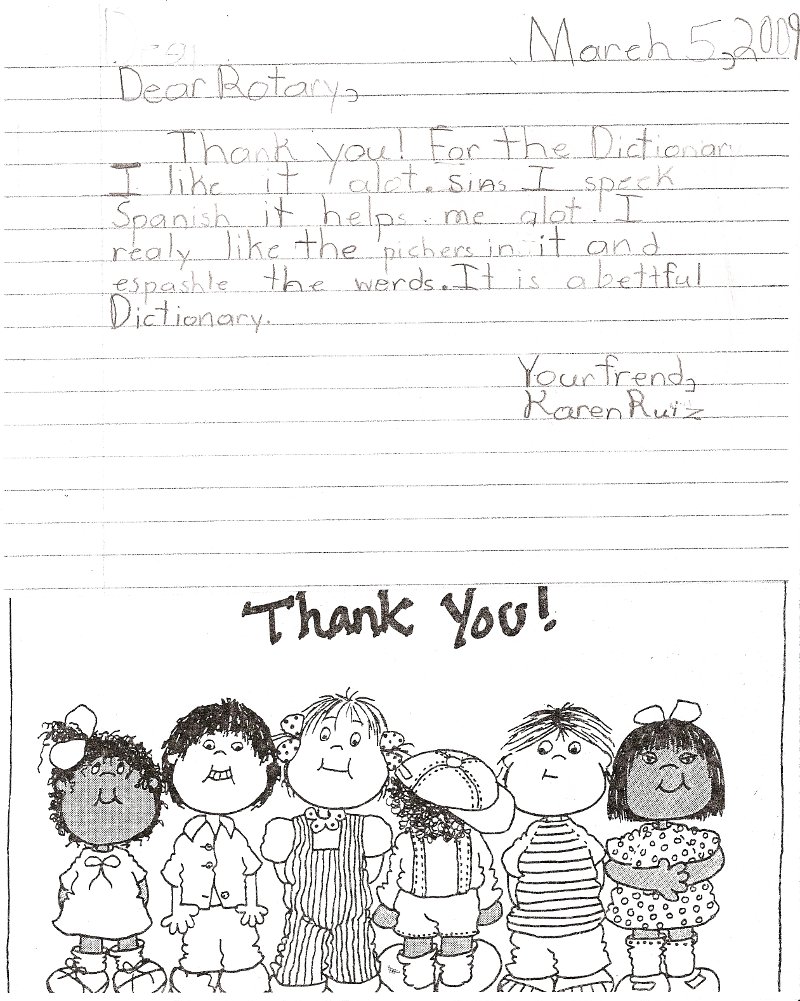 March 5, 2009
Dear Rotary,
Thank you! For the Dictionar
I like it alot. Sins I speek
Spanish it helps me alot! I
realy like the pichers in it and
espashle the werds. It is a bettful
Dictionary.
Your frend,
Karen Ruiz
Thank You!